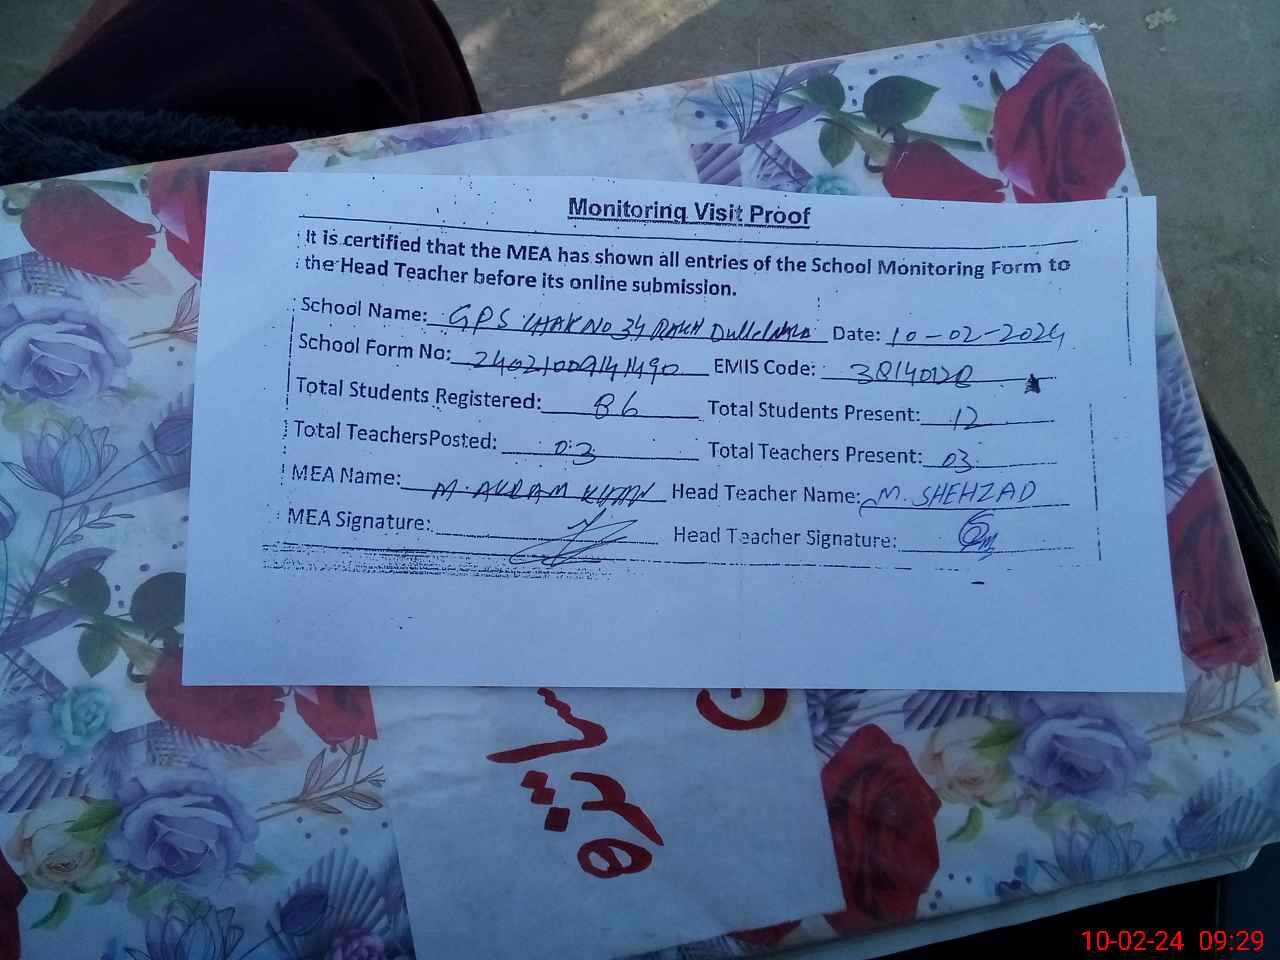 Monitoring Visit Proof
It is certified that the MEA has shown all entries of the School Monitoring Form to
the Head Teacher before its online submission.
School Name: GPS CHAK NO 34 RAKH Date: 10-02-2024
School Form No: EMIS Code: 38140128
Total Students Registered: 86 Total Students Present: 12
Total TeachersPosted: 03 Total Teachers Present: 03
MEA Name: M. AKRAM KHAN Head Teacher Name: M. SHEHZAD
MEA Signature: Head Teacher Signature:
10-02-24 09:29